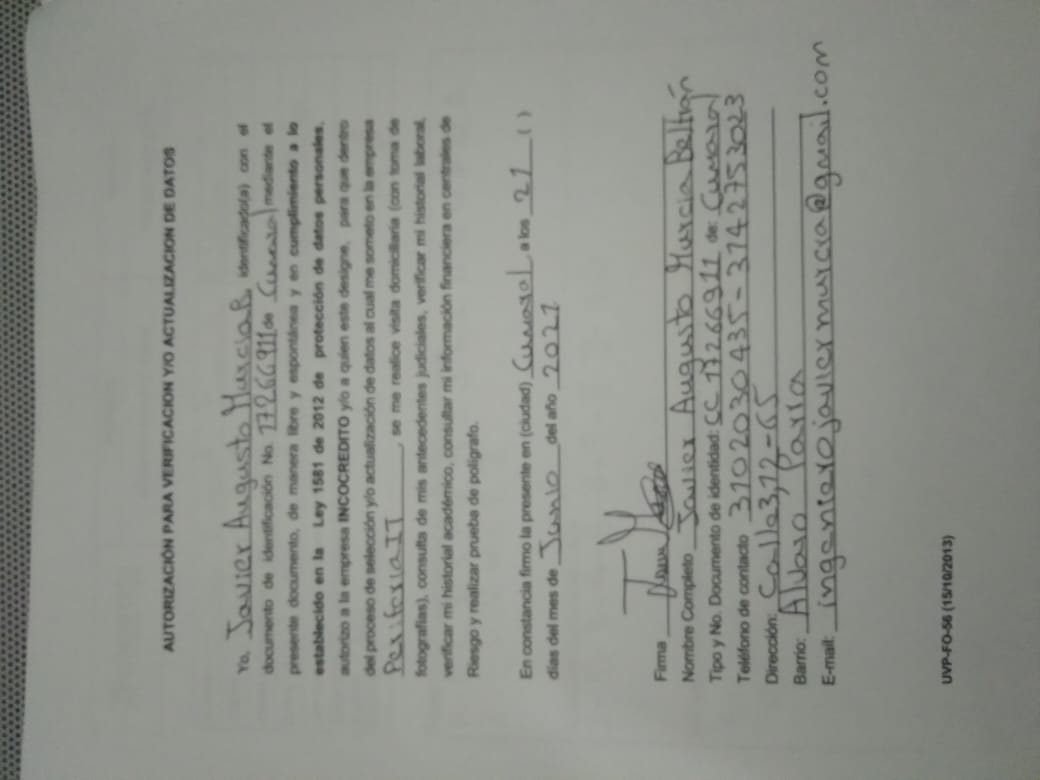 AUTORIZACIÓN PARA VERIFICACION Y/O ACTUALIZACION DE DATOS
Yo, Javier Augusto Murcia B. identificado(a) con el
documento de identificación No. 17266911 de Cumaral mediante el
presente documento, de manera libre y espontánea y en cumplimiento a lo
establecido en la Ley 1581 de 2012 de protección de datos personales,
autorizo a la empresa INCOCREDITO y/o a quien este designe, para que dentro
del proceso de selección y/o actualización de datos al cual me someto en la empresa
Periferia IT, se me realice visita domiciliaria (con toma de
fotografías), consulta de mis antecedentes judiciales, verificar mi historial laboral,
verificar mi historial académico, consultar mi información financiera en centrales de
Riesgo y realizar prueba de polígrafo.
En constancia firmo la presente en (ciudad) Cumaral a los 21 ( )
días del mes de Junio del año 2021
Firma
Nombre Completo Javier Augusto Murcia Beltrán
Tipo y No. Documento de identidad: CC 17266911 de: Cumaral
Teléfono de contacto 3102030435-3142753023
Dirección: Calle3,12-65
Barrio: Alvaro Parra
E-mail: ingenierojaviermurcia@gmail.com
UVP-FO-56 (15/10/2013)